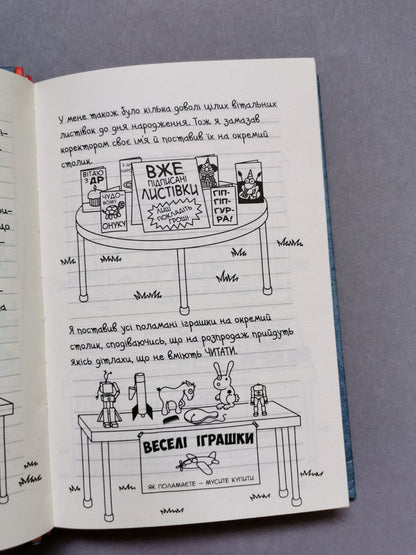 У мене також було кілька доволі цілих вітальних
листівок до дня народження. Тож я замазав
коректором своє ім'я й поставив їх на окремий
столик.
ВІТАЮ
З ДР
ЧУДО-
ВОМУ
ОНУКУ
ВЖЕ
ПІДПИСАНІ
ЛИСТІВКИ
ЛИШ
ПОКЛАДІТЬ
ГРОШІ
ГІП-
ГІП-
ГУР-
РА!
Я поставив усі поламані іграшки на окремий
столик, сподіваючись, що на розпродаж прийдуть
якісь дітлахи, що не вміють ЧИТАТИ.
ВЕСЕЛІ ІГРАШКИ
ЯК ПОЛАМАЄТЕ — МУСИТЕ КУПИТИ